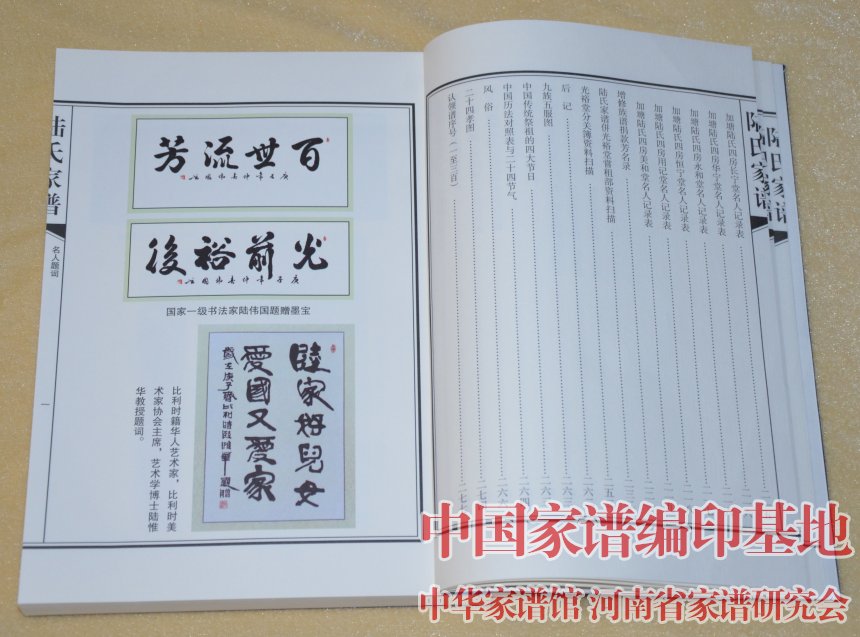 陆氏家谱
名人题词
一
百世流芳
光前裕後
国家一级书法家陆伟国题赠墨宝
陸家好兒女
愛國又愛家
比利时籍华人艺术家，比利时美
术家协会主席，艺术学博士陆惟
华教授题词。
陆氏家谱
加塘陆氏四房长宁堂名人记录表
加塘陆氏四房华宁堂名人记录表
加塘陆氏四房永和堂名人记录表
加塘陆氏四房恒宁堂名人记录表
加塘陆氏四房用记堂名人记录表
加塘陆氏四房美和堂名人记录表
增修族谱捐款芳名录
陆氏家谱供光裕堂晋祖部资料扫描
光裕堂分关簿资料扫描
后记
九族五服图
中国传统祭祖的四大节日
中国历法对照表与二十四节气
风俗
二十四孝图
认领谱序号（一至三百）
陆氏家谱
中国家谱编印基地
中华家谱馆 河南省家谱研究会